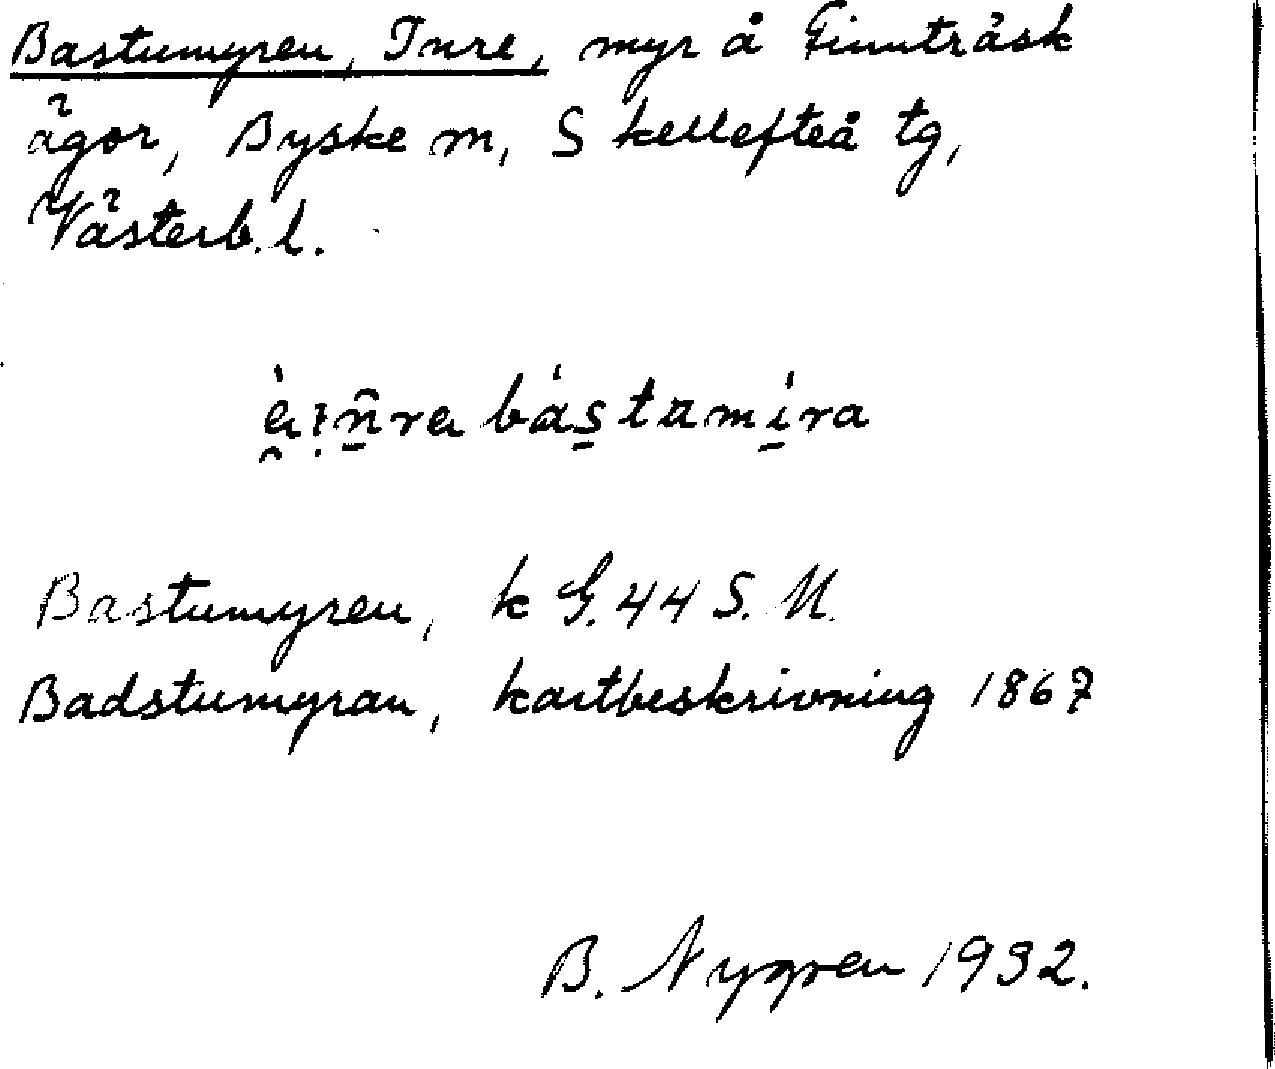 Bastumyren, Inre, myr å Finnträsk
ägor, Byske sn, Skellefteå tg,
Västerb. l.
bástumi̠ra
Bastumyren, k G. 44 S. U.
Badstumyran, kartbeskrivning 1867
B. Nygren 1932.